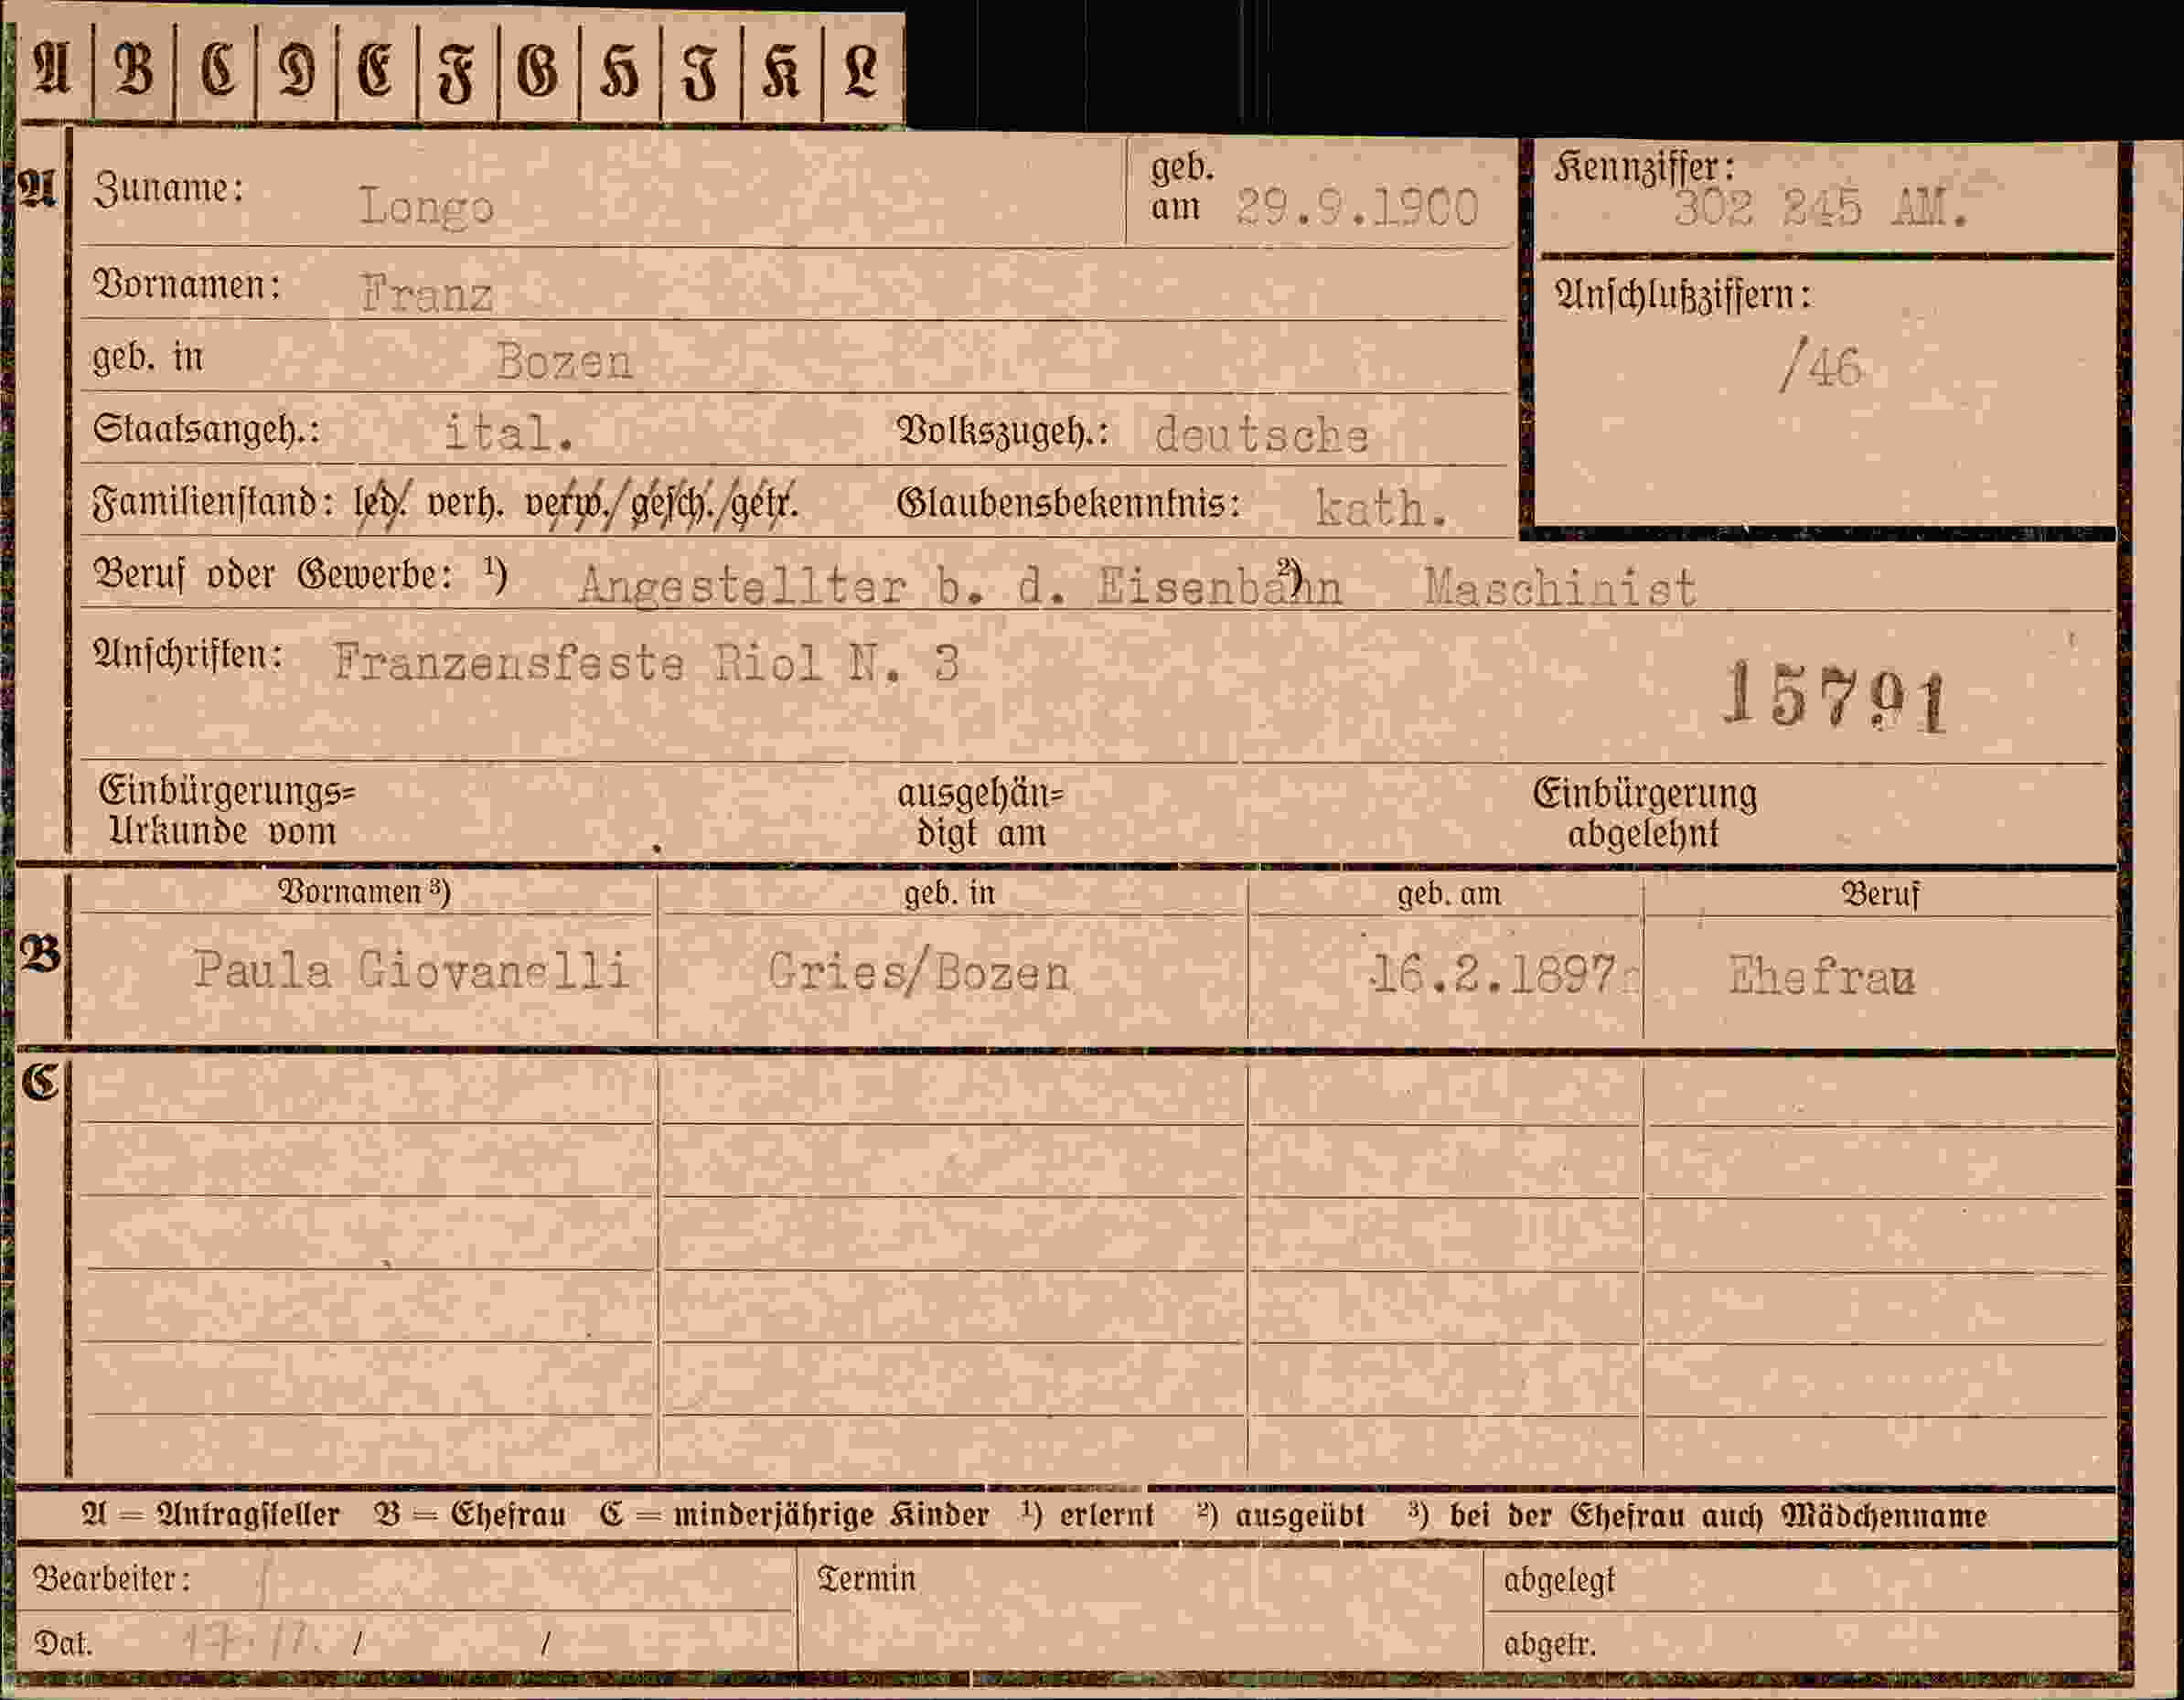 A B C D E F G H J K L
A Zuname: Longo geb. am 29.9.1900 Kennziffer: 302 245 AM.
Vornamen: Franz Anschlußziffern:
geb. in Bozen /46
Staatsangeh.: ital. Volkszugeh.: deutsche
Familienstand: led. verh. verw./gesch./getr. Glaubensbekenntnis: kath.
Beruf oder Gewerbe: ¹) Angestellter b. d. Eisenbahn ²) Maschinist
Anschriften: Franzensfeste Riol N. 3
15791
Einbürgerungs= ausgehän= Einbürgerung
Urkunde vom digt am abgelehnt
Vornamen ³) geb. in geb. am Beruf
B Paula Giovanelli Gries/Bozen 16.2.1897 Ehefrau
C
A = Antragsteller B = Ehefrau C = minderjährige Kinder ¹) erlernt ²) ausgeübt ³) bei der Ehefrau auch Mädchenname
Bearbeiter: Termin abgelegt
Dat. / / abgetr.